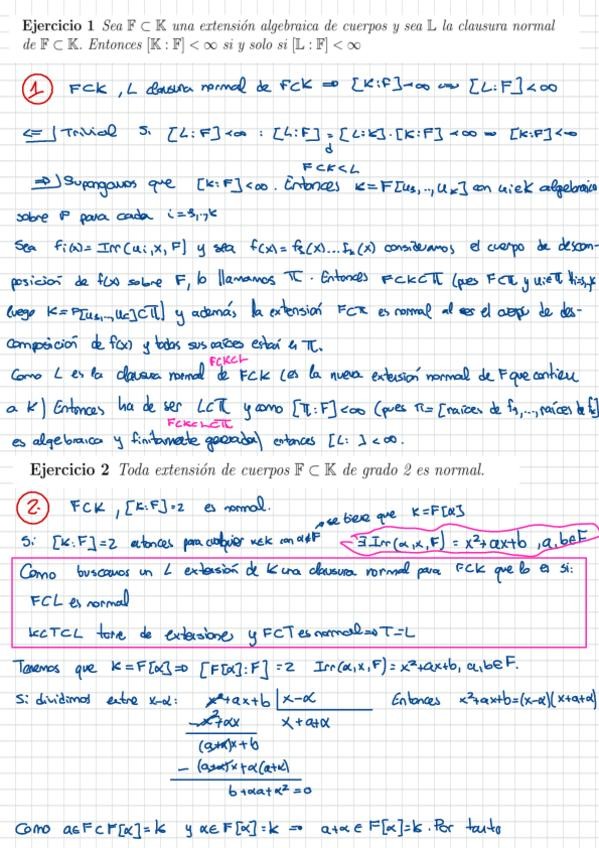 Ejercicio 1 Sea 𝔽 ⊂ 𝕂 una extensión algebraica de cuerpos y sea 𝕃 la clausura normal
de 𝔽 ⊂ 𝕂. Entonces [𝕂 : 𝔽] < ∞ si y solo si [𝕃 : 𝔽] < ∞
① F⊂K, L clausura normal de F⊂K ⇒ [K:F]<∞ ⟺ [L:F]<∞
⇐] Trivial Si [L:F]<∞ : [L:F] = [L:K]·[K:F] <∞ ⇒ [K:F]<∞
F⊂K⊂L
⇒) Supongamos que [K:F]<∞. Entonces K=F[u₁,..,uₖ] con uᵢ∈K algebraico
sobre F para cada i=1,..,k
Sea fᵢ(x)= Irr(uᵢ,x,F) y sea f(x)=f₁(x)...fₖ(x) consideramos el cuerpo de descom-
posición de f(x) sobre F, lo llamamos π. Entonces F⊂K⊂π (pues F⊂π y uᵢ∈π ∀i=1,..,k
luego K=F[u₁,..,uₖ]⊂π) y además la extensión F⊂π es normal al ser el cuerpo de des-
composición de f(x) y todas sus raíces están en π.
F⊂K⊂L
Como L es la clausura normal de F⊂K (es la nueva extensión normal de F que contiene
a K) Entonces ha de ser L⊂π y como [π:F]<∞ (pues π=[raíces de f₁,...,raíces de fₖ]
F⊂K⊂L⊂π
es algebraica y finitamente generada) entonces [L: ]<∞.
Ejercicio 2 Toda extensión de cuerpos 𝔽 ⊂ 𝕂 de grado 2 es normal.
② F⊂K, [K:F]=2 es normal.
se tiene que K=F[α]
Si [K:F]=2 entonces para cualquier α∈K con α∉F ∃ Irr(α,x,F) = x²+ax+b , a,b∈F
Como buscamos un L extensión de K una clausura normal para F⊂K que lo es si:
F⊂L es normal
K⊂T⊂L torre de extensiones y F⊂T es normal ⇒ T=L
Tenemos que K=F[α] ⇒ [F[α]:F]=2 Irr(α,x,F)=x²+ax+b, a,b∈F.
Si dividimos entre x-α: x²+ax+b | x-α Entonces x²+ax+b=(x-α)(x+a+α)
-x²+αx x+a+α
(a+α)x+b
-(a+α)x+α(a+α)
b+αa+α²=0
Como a∈F⊂F[α]=K y α∈F[α]=K ⇒ a+α∈F[α]=K. Por tanto